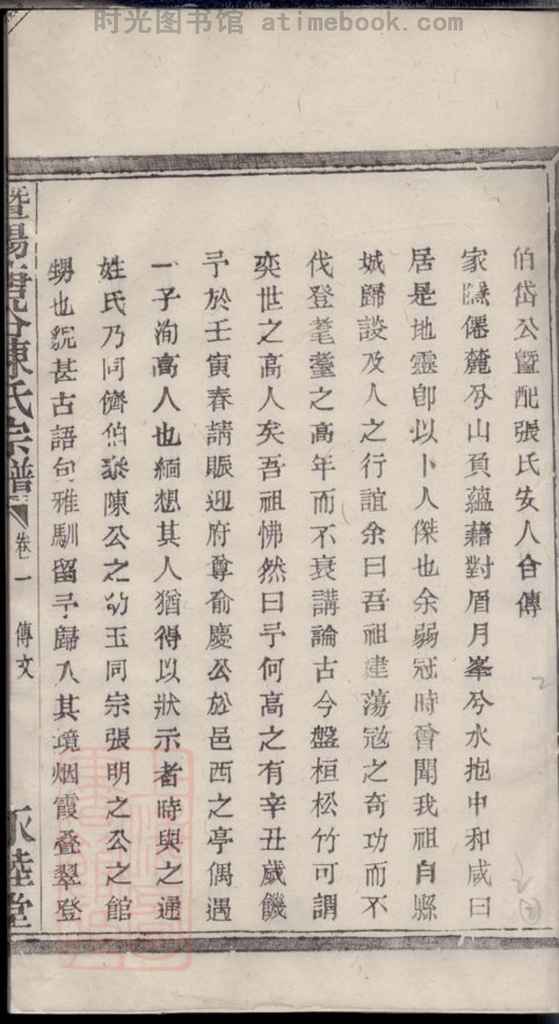 时光图书馆 atimebook.com
伯岱公暨配張氏安人合傳
家隱僊麓兮山負蘊藉對眉月峯兮水抱中和咸曰
居是地靈卽以卜人傑也余弱冠時曾聞我祖自縣
城歸談及人之行誼余曰吾祖建蕩寇之奇功而不
伐登耄耋之高年而不衰講論古今盤桓松竹可謂
奕世之高人矣吾祖怫然曰予何高之有辛丑歲饑
予於壬寅春請賑迎府尊俞慶公於邑西之亭偶遇
一子洵高人也緬想其人猶得以狀示者時與之通
姓氏乃同儕伯泰陳公之幼玉同宗張明之公之館
甥也貌甚古語句雅馴留予歸入其境烟霞叠翠登
暨陽 谷陳氏宗譜 卷一 傳文 永睦堂